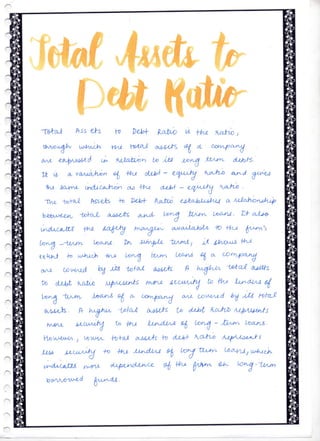 Total Assets to
Debt Ratio
Total Assets to Debt Ratio is the ratio,
through which the total assets of a company
are expressed in relation to its long term debts.
It is a variation of the debt - equity ratio and gives
the same indication as the debt - equity ratio.
The total Assets to Debt Ratio establishes a relationship
between total assets and long term loans. It also
indicates the safety margin available to the firm's
long - term loans. In simple terms, it shows the
extent to which the long term loans of a company
are covered by its total assets. A higher total assets
to debt ratio represents more security to the lenders of
long term loans of a company are covered by its total
assets. A higher total assets to debt ratio represents
more security to the lenders of long - term loans.
However, lower total assets to debt ratio represents
less security to the lenders of long term loans, which
indicates more dependence of the firm on long-term
borrowed funds.